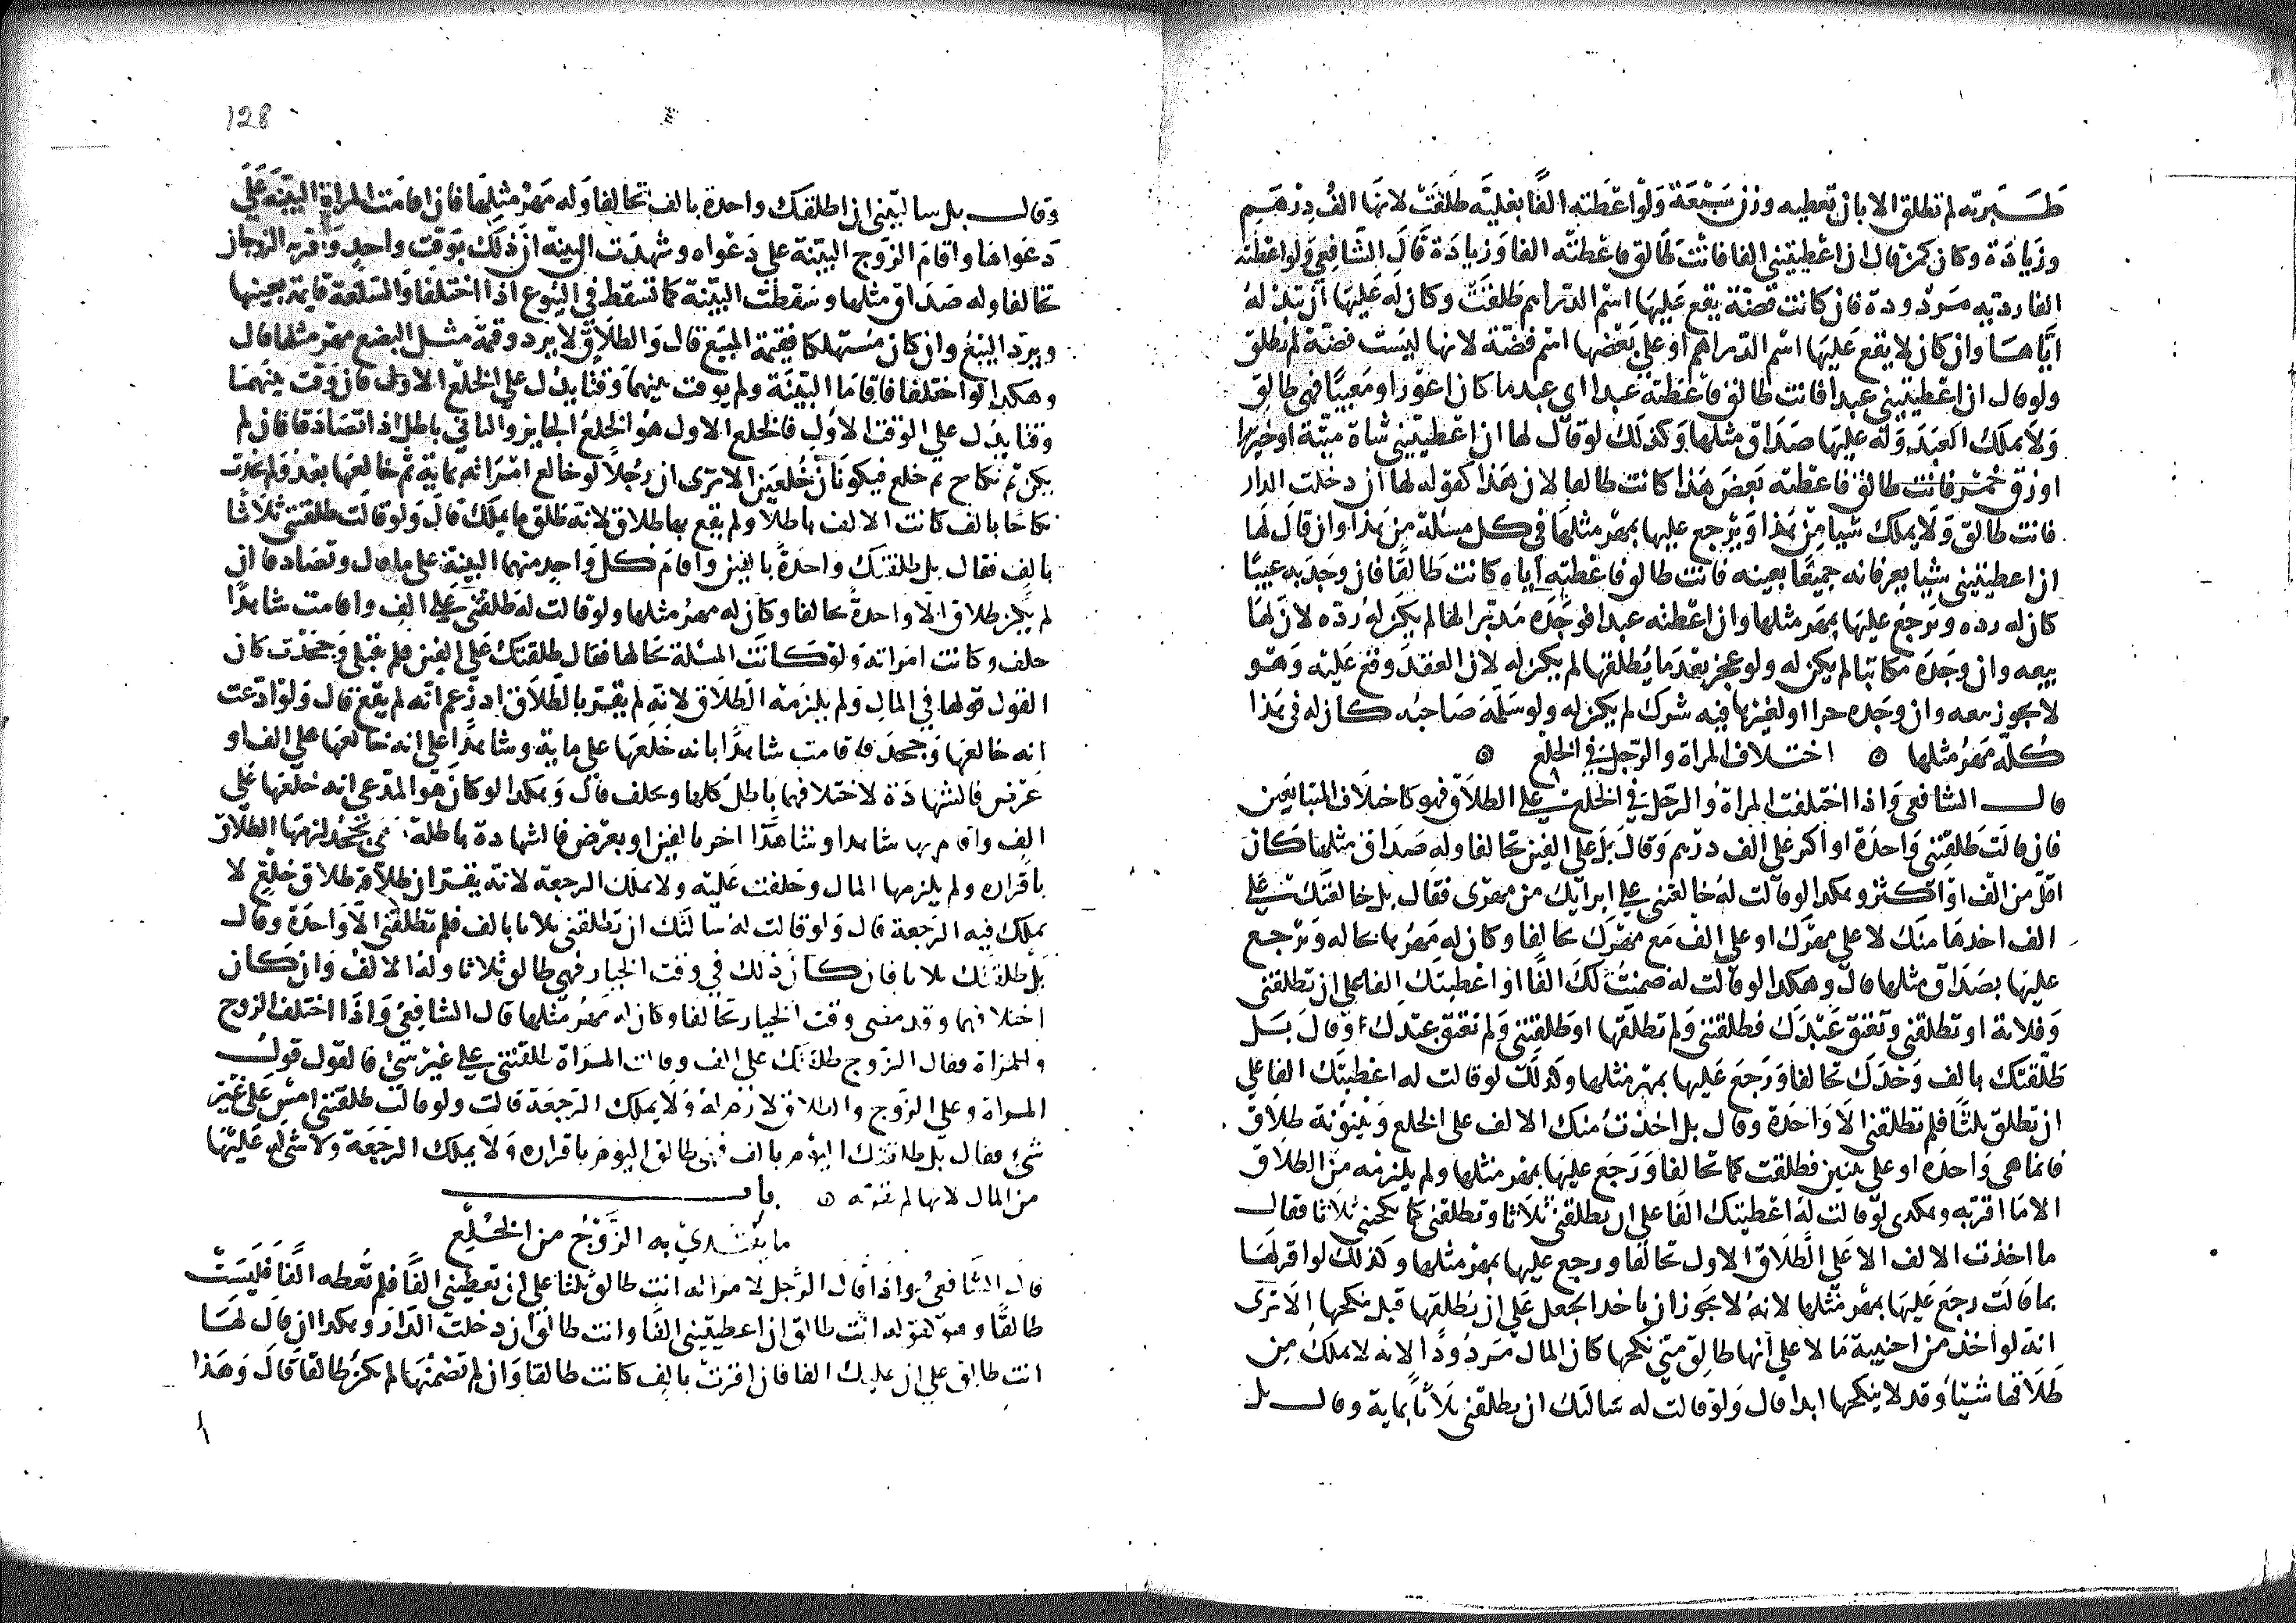 طبرية لم تطلق الا بان تعطيه وزن سبعة ولو اعطته الفا بغلية طلقت لانها الف درهم
وزيادة وكان كمن قال ان اعطيتني الفا فانت طالق فاعطته الفا وزيادة قال الشافعي ولو اعطته
الفا ردية مردودة فان كانت فضة يقع عليها اسم الدراهم طلقت وكان له عليها ان تبدله
اياها وان كان لا يقع عليها اسم الدراهم او على بعضها اسم فضة لانها ليست فضة لم تطلق
ولو قال ان اعطيتيني عبدا فانت طالق فاعطته عبدا اي عبد ما كان اعور او معيبا فهي طالق
ولا يملك العبد وله عليها صداق مثلها وكذلك لو قال لها ان اعطيتيني شاة ميتة او خنزيرا
او زق خمر فانت طالق فاعطته بعض هذا كانت طالقا لان هذا كقوله لها ان دخلت الدار
فانت طالق ولا يملك شيا من هذا ويرجع عليها بمهر مثلها في كل مسئلة من هذا وان قال لها
ان اعطيتيني شيا يعرفانه جميعا بعينه فانت طالق فاعطته اياه كانت طالقا فان وجد به عيبا
كان له رده ويرجع عليها بمهر مثلها وان اعطته عبدا فوجده مدبرا لها لم يكن له رده لان لها
بيعه وان وجده مكاتبا لم يكن له ولو عجز بعد ما يطلقها لم يكن له لان العقد وقع عليه وهو
لا يجوز بيعه وان وجده حرا او لغيرها فيه شرك لم يكن له ولو سلمه صاحبه كان له في هذا
كله مهر مثلها ٥ اختلاف المراة والرجل في الخلع ٥
قال الشافعي واذا اختلفت المراة والرجل في الخلع على الطلاق فهو كاختلاف المتبايعين
فان قالت طلقتني واحدة او اكثر على الف درهم وقال بل على الفين تحالفا وله صداق مثلها كان
اقل من الف او اكثر وهكذا لو قالت له خالعتني على ابرايك من مهري فقال بل خالعتك على
الف اخذها منك لا على مهرك او على الف مع مهرك تحالفا وكان له مهرها بحاله ويرجع
عليها بصداق مثلها قال وهكذا لو قالت له ضمنت لك الفا او اعطيتك الفا على ان تطلقني
وفلانة او تطلقني وتعتق عبدك فطلقتني ولم تطلقها او طلقتني ولم تعتق عبدك وقال بل
طلقتك بالف وحدك تحالفا ورجع عليها بمهر مثلها وكذلك لو قالت له اعطيتك الفا على
ان تطلق ثلثا فلم تطلقني الا واحدة وقال بل اخذت منك الالف على الخلع وبينونة طلاق
فانما هي واحدة او على ثنتين فطلقت كما تحالفا ورجع عليها بمهر مثلها ولم يلزمه من الطلاق
الا ما اقر به وهكذى لو قالت له اعطيتك الفا على ان تطلقني ثلاثا وتطلقني كما نكحتني ثلاثا فقال
ما اخذت الالف الا على الطلاق الاول تحالفا ورجع عليها بمهر مثلها وكذلك لو اقر لها
بما قالت رجع عليها بمهر مثلها لانه لا يجوز ان ياخذ الجعل على ان يطلقها قبل نكحها الا ترى
انه لو اخذ من اجنبية مالا على انها طالق متى نكحها كان المال مردودا لانه لا يملك من
طلاقها شيئا وقد لا ينكحها ابدا قال ولو قالت له سالتك ان تطلقني ثلاثا بماية وقال بل
128
وقال بل سالتيني ان اطلقك واحدة بالف تحالفا وله مهر مثلها فان اقامت المراة البينة على
دعواها واقام الزوج البينة على دعواه وشهدت البينة ان ذلك بوقت واحد واقر به الزوجان
تحالفا وله صداق مثلها وسقطت البينة كما تسقط في البيوع اذا اختلفا والسلعة قايمة بعينها
ويرد البيع وان كان مستهلكا فقيمة المبيع قال والطلاق لا يرد وقيمة مثل البضع مهر مثلها قال
وهكذا لو اختلفا فاقاما البينة ولم يوقت بينهما وقتا يدل على الخلع الاول فان وقت بينهما
وقتا يدل على الوقت الاول فالخلع الاول هو الخلع الجايز والثاني باطل اذا تصادقا فان لم
يكن ثم نكاح ثم خلع فيكونان خلعين الا ترى ان رجلا لو خالع امراته بماية ثم خالعها بعد ولم يحدث
نكاحا بالف كانت الالف باطلا ولم يقع بها طلاق لانه طلق ما يملك قال ولو قالت طلقتني ثلاثا
بالف فقال بل طلقتك واحدة بالفين واقام كل واحد منهما البينة على ما قال وتصادقا ان
لم يكن طلاق الا واحدة تحالفا وكان له مهر مثلها ولو قالت له طلقتني على الف واقامت شاهدا
حلف وكانت امراته ولو كانت المسئلة بحالها فقال طلقتك على الفين فلم تقبلي وجحدت كان
القول قولها في المال ولم يلزمه الطلاق لانه لم يقر بالطلاق اذ زعم انه لم يقع قال ولو ادعت
انه خالعها وجحد فاقامت شاهدا بانه خلعها على ماية وشاهدا على انه خالعها على الف او
عرض فالشهادة لاختلافهما باطل كلها ويحلف قال وهكذا لو كان هو المدعي انه خلعها على
الف واقام بها شاهدا وشاهدا اخر بالفين او بعرض فالشهادة باطلة وهي تجحد لزمها الطلاق
باقراره ولم يلزمها المال وحلفت عليه ولا يملك الرجعة لانه يقر ان طلاقه طلاق خلع لا
يملك فيه الرجعة قال ولو قالت له سالتك ان تطلقني ثلاثا بالف فلم تطلقني الا واحدة وقال
بل طلقتك ثلاثا فان كان ذلك في وقت الخيار فهي طالق ثلاثا وله الالف وان كان
اختلافهما وقد مضى وقت الخيار تحالفا وكان له مهر مثلها قال الشافعي واذا اختلف الزوج
والمراة فقال الزوج طلقتك على الف وقالت المراة طلقتني على غير شئ فالقول قول
المراة وعلى الزوج والطلاق لازم له ولا يملك الرجعة قالت ولو قالت طلقتني امس على غير
شئ فقال بل طلقتك اليوم بالف فهي طالق اليوم باقراره ولا يملك الرجعة ولا شئ له عليها
من المال لانها لم تقر به ٥ باب
ما يفتدي به الزوج من الخلع
قال الشافعي واذا قال الرجل لامراته انت طالق ثلثا على ان تعطيني الفا فلم تعطه الفا فليست
طالقا وهو كقوله انت طالق ان اعطيتيني الفا وانت طالق ان دخلت الدار وهكذا ان قال لها
انت طالق على ان عليك الفا فان اقرت بالف كانت طالقا وان لم تضمنها لم يكن طالقا قال وهذا